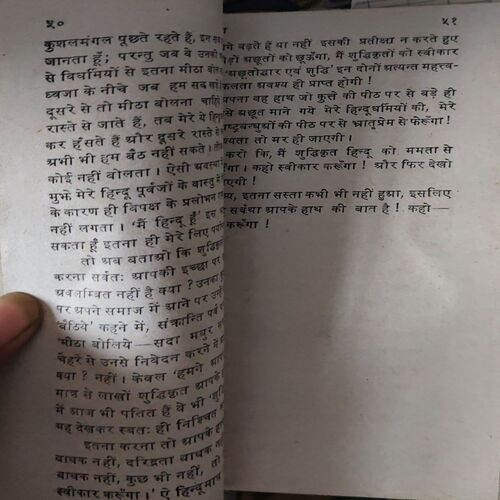 ५०
कुशलमंगल पूछते रहते हैं, इन सब
जानता हूँ; परन्तु जब वे उनकी
से विधर्मियों से इतना मीठा बोल
ध्वजा के नीचे जब हम सद
दूसरे से तो मीठा बोलना चाहि
रास्ते से जाते हैं, तब मेरे ये हि
कर हँसते हैं और दूसरे रास्ते से
अभी भी हम बैठ नहीं सकते।
कोई नहीं बोलता। ऐसी अवस्था
मुझे मेरे हिन्दू पूर्वजों के वास्तु में
के कारण ही विपक्ष के प्रलोभन
नहीं लगता। 'मैं हिन्दू हूँ' इस
सकता हूँ इतना ही मेरे लिए
तो अब बताओ कि शुद्धिकृ
करना सर्वतः आपकी इच्छा पर
अवलम्बित नहीं है क्या? उनका
पर अपने समाज में आने पर उन
'बैठिये' कहने में, संक्रान्ति पर्व
'मीठा बोलिये—सदा मधुर
चेहरे से उनसे निवेदन करने में
क्या? नहीं। केवल 'हमने आप
मात्र से लाखों शुद्धिकृत आपके
में आज भी पतित हैं वे भी
यह देखकर स्वतः ही निश्चित
इतना करना तो आपके हा
बाधक नहीं, दरिद्रता बाधक न
बाधक नहीं, कुछ भी नहीं, तो
स्वीकार करूँगा।' ऐ हिन्दू
५१
गे बढ़ते हैं या नहीं इसकी प्रतीक्षा न करते हुए
ड़ों अछूतों को छूऊँगा, मैं शुद्धिकृतों को स्वीकार
अछूतोद्धार एवं शुद्धि' इन दोनों अत्यन्त महत्त्व-
फलता अवश्य ही प्राप्त होगी!
अपना वह हाथ जो कुत्ते की पीठ पर से बड़े ही
से अछूत माने गये मेरे हिन्दूधर्मियों की, मेरे
राष्ट्रबन्धुओं की पीठ पर से भ्रातृप्रेम से फेरूँगा!
श्यता तो मर ही जाएगी।
करो कि, मैं शुद्धिकृत हिन्दू को ममता से
गा। कहो स्वीकार करूँगा! और फिर देखो
एगी!
य, इतना सस्ता कभी भी नहीं हुआ, इसलिए
सर्वथा आपके हाथ की बात है! कहो—
करूँगा!